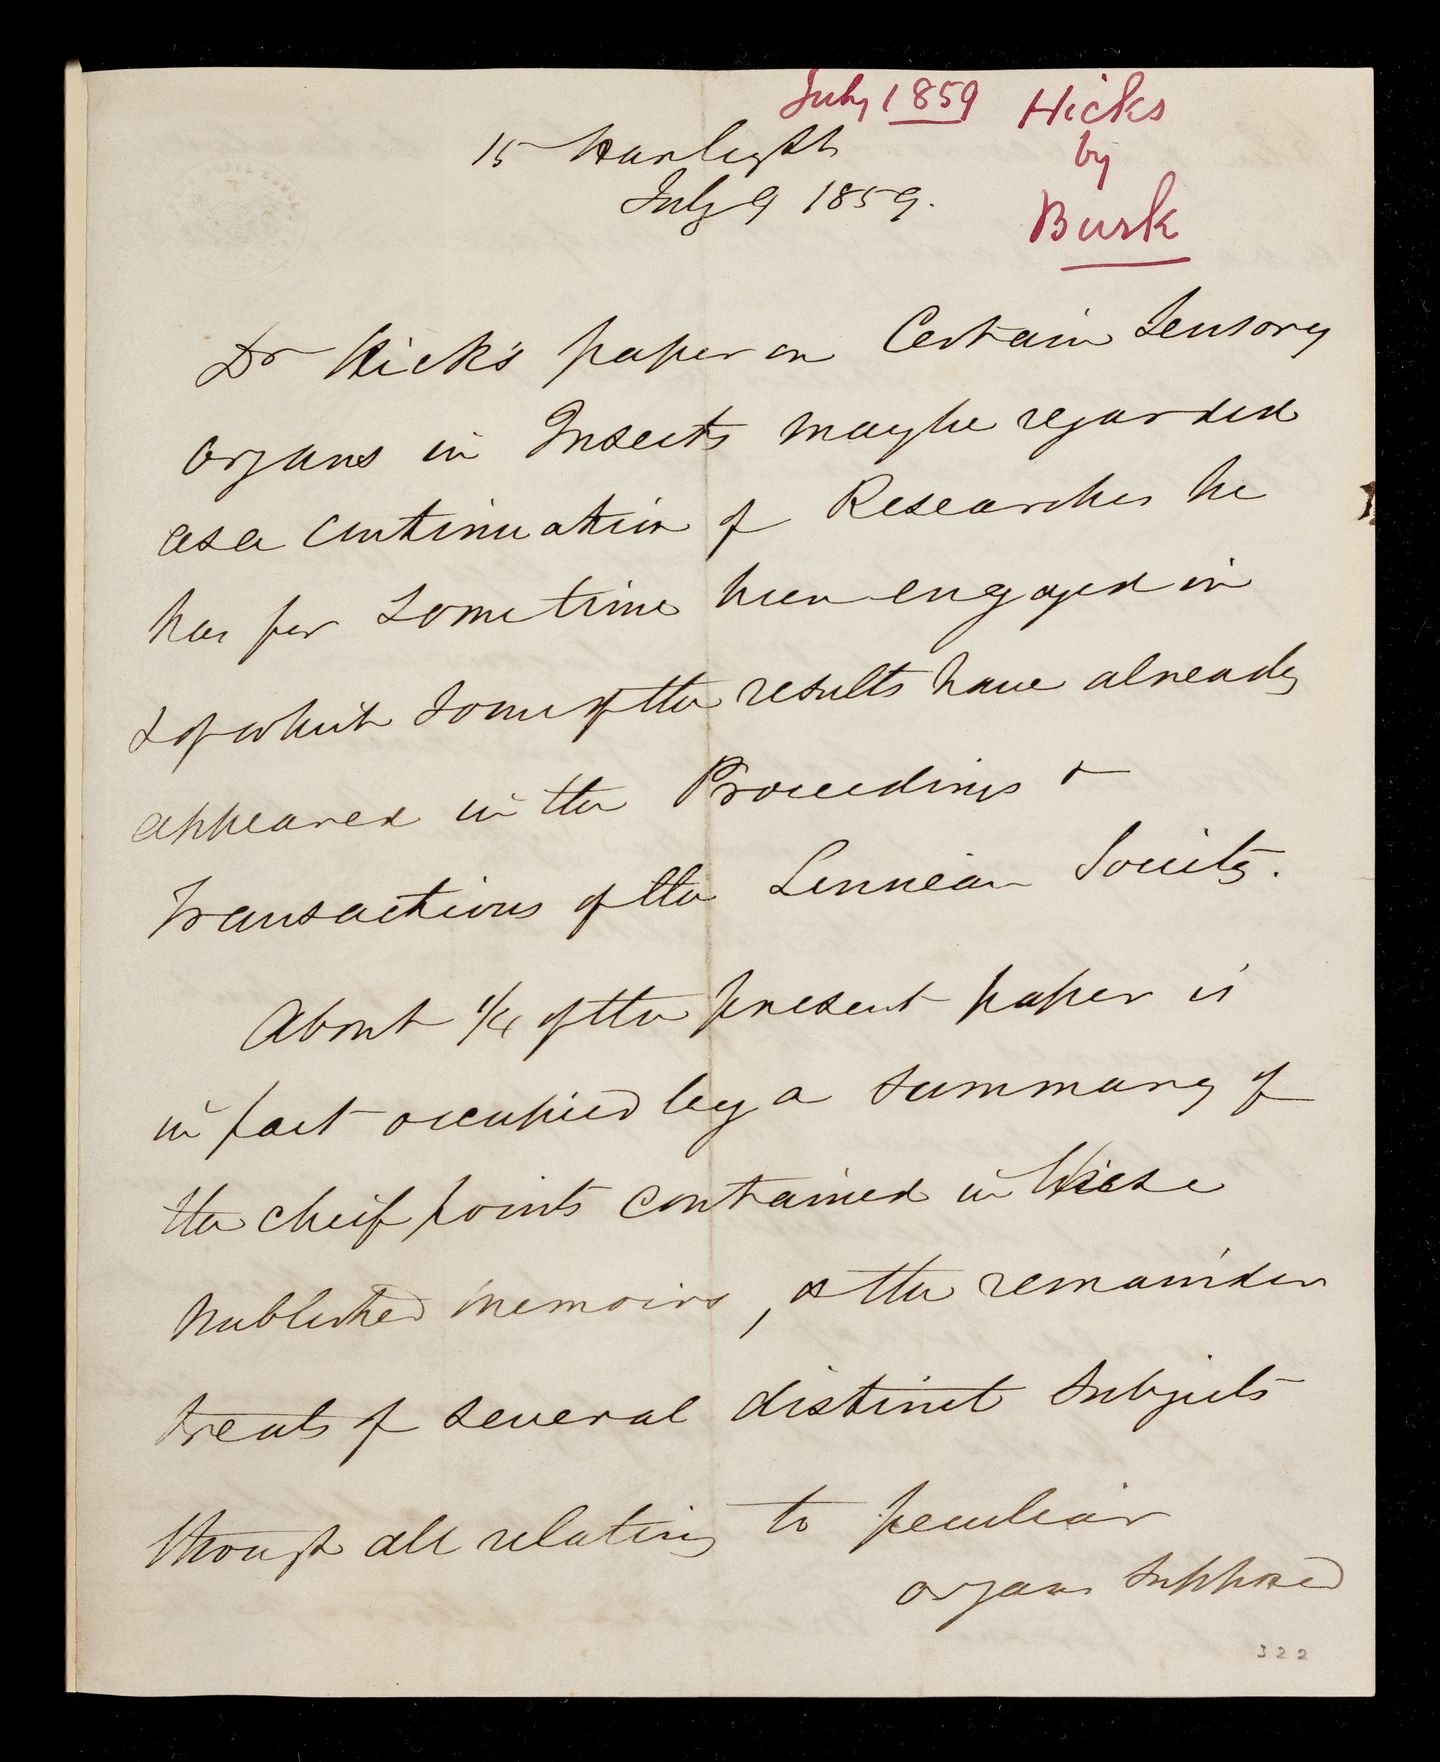 July 1859 Hicks
by
Busk
15 Harley St
July 9 1859.
Dr Hicks's paper on Certain Sensory
organs in Insects may be regarded
as a continuation of Researches he
has for some time been engaged in
& of which some of the results have already
appeared in the Proceedings &
Transactions of the Linnean Society.
About 1/4 of the present paper is
in fact occupied by a summary of
the cheif points contained in these
published memoirs, & the remainder
treats of several distinct subjects
though all relating to peculiar
organs supposed
322